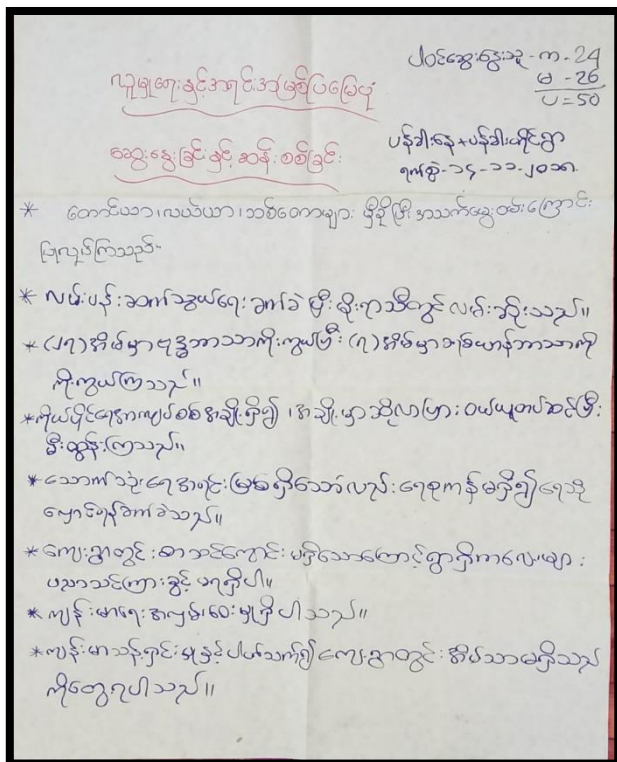 ပါဝင်ဆွေးနွေးသူ - က - 24
မ - 26
ပ = 50
လူမှုရေးနှင့်အရင်းအမြစ်ပြမြေပုံ
ဆွေးနွေးခြင်းနှင့်ဆန်းစစ်ခြင်း
ပန်ခါးနေ+ပန်ခါးထိုင်ရွာ
ရက်စွဲ-၁၄-၁၁-၂၀၁၈
* တောင်ယာ၊လယ်ယာ၊သစ်တောများ မှီခိုပြီးအသက်မွေးဝမ်းကြောင်း
ပြုလုပ်ကြသည်-
* လမ်းပန်းဆက်သွယ်ရေးခက်ခဲပြီးမိုးရာသီတွင်လမ်းဆိုးသည်။
* (၂၇)အိမ်မှာဗုဒ္ဓဘာသာကိုးကွယ်ပြီး(၇)အိမ်မှာခရစ်ယာန်ဘာသာကို
ကိုးကွယ်ကြသည်။
* ကိုယ်ပိုင်ရေအားလျှပ်စစ်အချို့ရှိ၍၊အချို့မှာဆိုလာပြားဝယ်ယူတပ်ဆင်ပြီး
မီးထွန်းကြသည်။
* သောက်သုံးရေအရင်းမြစ်ရှိသော်လည်းရေစုကန်မရှိ၍ရေသို
လှောင်ရန်ခက်ခဲသည်။
* ကျေးရွာတွင်းစာသင်ကျောင်းမရှိသောကြောင့်ရွာရှိကလေးများ
ပညာသင်ကြားခွင့်မရရှိပါ။
* ကျန်းမာရေးအလှမ်းဝေးမှုရှိပါသည်။
* ကျန်းမာသန့်ရှင်းမှုနှင့်ပါတ်သက်၍ကျေးရွာတွင်းအိမ်သာမရှိသည်
ကိုတွေ့ရပါသည်။